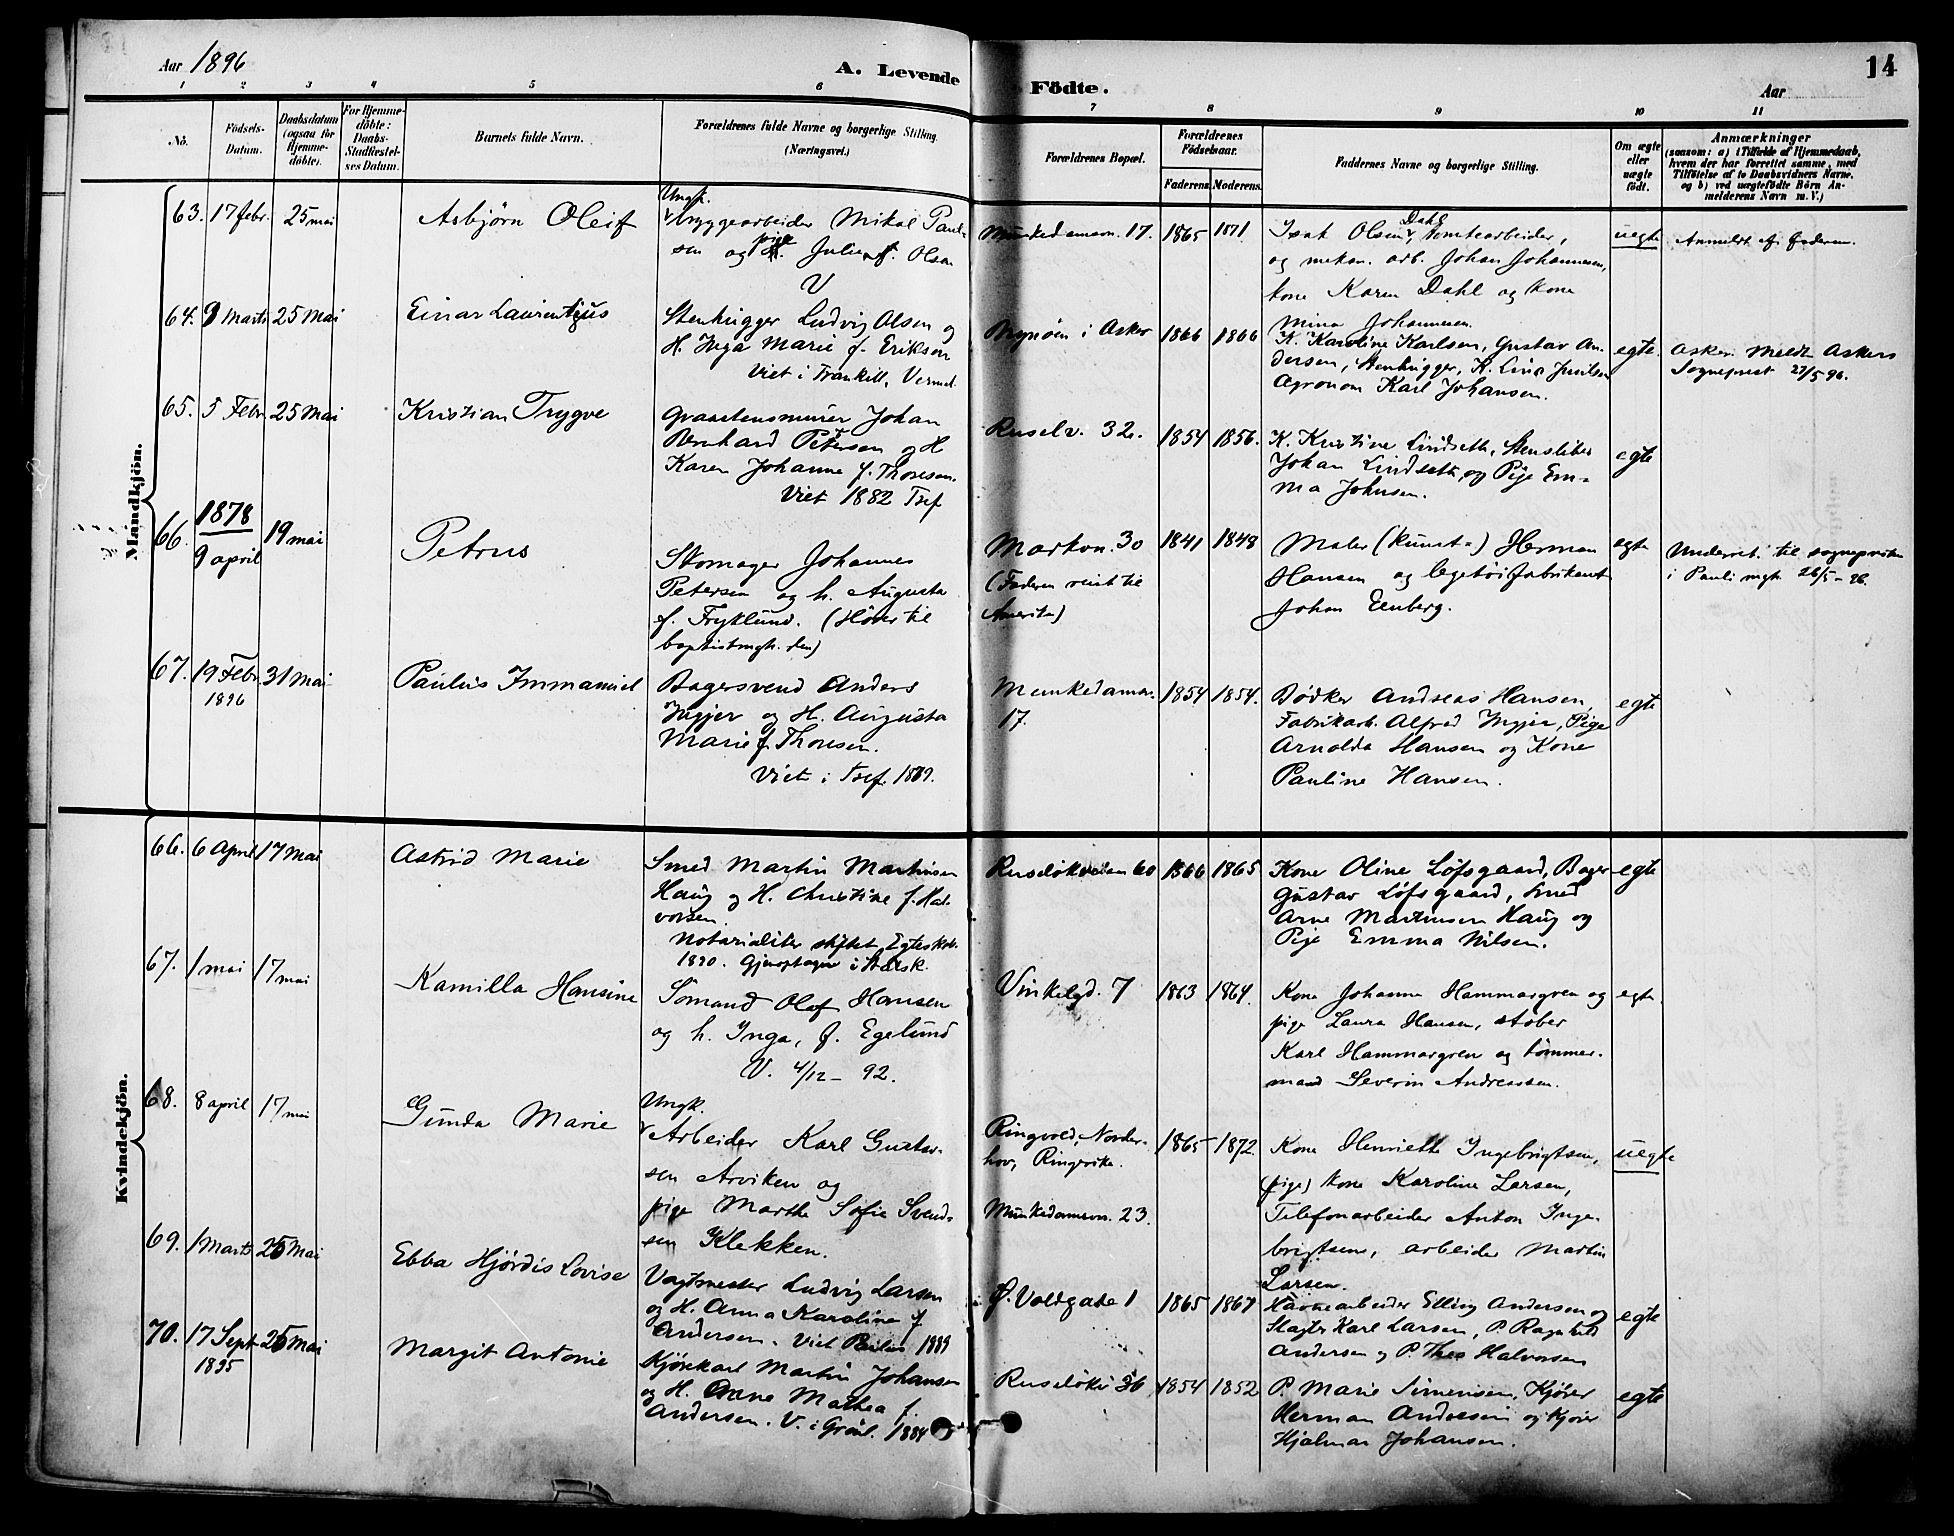 Aar 1896
A. Levende Födte.
14
Aar
1 2 3 4 5 6 7 8 9 10 11
No.
Födsels-Datum.
Daabsdatum (ogsaa for Hjemme-döbte).
For Hjemme-döbte: Daabs-Stadfæstel-ses Datum.
Barnets fulde Navn.
Forældrenes fulde Navne og borgerlige Stilling. (Næringsvei.)
Forældrenes Bopæl.
Forældrenes Födselsaar.
Faderens. Moderens.
Faddernes Navne og borgerlige Stilling.
Om ægte eller uægte födt.
Anmærkninger
(saasom: a) i Tilfælde af Hjemmedaab,
hvem der har forrettet samme, med
Tilföielse af to Daabsvidners Navne,
og b) ved uægtefödte Börn An-
melderens Navn m. V.)
Mandkjön.
63. 17 febr. 25 mai
Asbjörn Oleif
Ungk.
Bryggearbeider Mikal Paul-
sen og pige Julie Olsen
V
Munkedamsv. 17. 1865 1871.
Isak Olsen Dahl, tomtearbeider,
og mekan. arb. Johan Johannesen,
kone Karen Dahl og kone
Mina Johannesen.
uegte
Anmeldt af Faderen.
64. 9 Marts 25 Mai
Einar Laurentius
Stenhugger Ludvig Olsen og
H. Inga Marie f. Eriksen
Viet i Frankill, Verml.
i Asker 1866 1866
K. Karoline Karlsen, Gustav An-
dersen, Stenhugger, K. Lina
Agronom Karl Johansen.
egte.
Asker. Meldt Askers
Sognepræst 27/5 96.
65. 5 Febr. 25 Mai
Kristian Trygve
Graastensmurer Johan
Bernhard Petersen og H
Karen Johanne f. Thoresen.
Viet 1882 Tref
Ruselv. 32. 1854 1856.
K. Kristine Lindseth, Stensliber
Johan Lindseth, og Pige Em-
ma Johnsen.
egte
66. 1878
9 april 19 mai
Petrus
Skomager Johannes
Petersen og h. Augusta
f. Fryklund. (Hörer til
baptistmgh. den)
Markvn. 30
(Faderen reist til
Amerika)
1841 1848
Maler (kunst-) Herman
Hansen og legetöifabrikant
Johan Eenberg.
egte
Underret. til sognepræsten
i Pauli mgh. 26/5-96.
67. 19 Febr. 31 Mai
1896
Paulus Immanuel
Bagersvend Anders
Ingjer og H. Augusta
Marie f. Thoresen.
Viet i Tref. 1879.
Munkedamsv.
17.
1854 1854.
Bödker Andreas Hansen,
Fabrikarb. Alfred Ingjer, Pige
Arnolda Hansen og Kone
Pauline Hansen.
egte
Kvindekjön.
66. 6 April 17 Mai
Astrid Marie
Smed Martin Martinsen
Haug og H. Christine f. Hal-
vorsen.
Notarialiter stiftet Egteskab
1890. Gjenoptagen i Statsk.
60 1866 1865
Kone Oline Löfsgaard, Bager
Gustav Löfsgaard, Smed
Arne Martinsen Haug og
Pige Emma Nilsen.
egte
67. 1 mai 17 mai
Kamilla Hansine
Sömand Olaf Hansen
og h. Inga, f. Egelund
V. 4/12-92.
Vinkelgd. 7 1863 1864.
Kone Johanne Hammargren og
pige Laura Hansen, stöber
Karl Hammargren og tömmer-
mand Severin Andreassen.
egte
68. 8 april 17 mai
Gunda Marie
Ungk.
Arbeider Karl Gustav-
sen Arviken og
pige Marthe Sofie Svend-
sen Klekken.
Ringvold, Norder-
hov, Ringerike.
Munkedamsvn. 23.
1865 1872.
Kone Henriette Ingebrigtsen,
(pige) kone Karoline Larsen,
Telefonarbeider Anton Inge-
brigtsen, arbeider Martin
Larsen.
uegte
69. 1 Marts 25 Mai
Ebba Hjördis Lovise
Vagtmester Ludvig Larsen
og H. Anna Karoline f
Andersen. Viet Paulus 1889
Ø. Voldgade 1 1865 1867
Havnearbeider Elling Andersen og
Slagter Karl Larsen, P. Ragnhild
Andersen og P. Thea Halvorsen
egte
70. 17 Sept 25 Mai
1895
Margit Antonie
Kjörekarl Martin Johansen
og H. Anne Mathea f.
Andersen. V. i Grönl. 1884
Ruselökv 36 1854 1852
P. Marie Simensen, Kjörer
Herman Andresen og Kjörer
Hjalmar Johansen.
egte